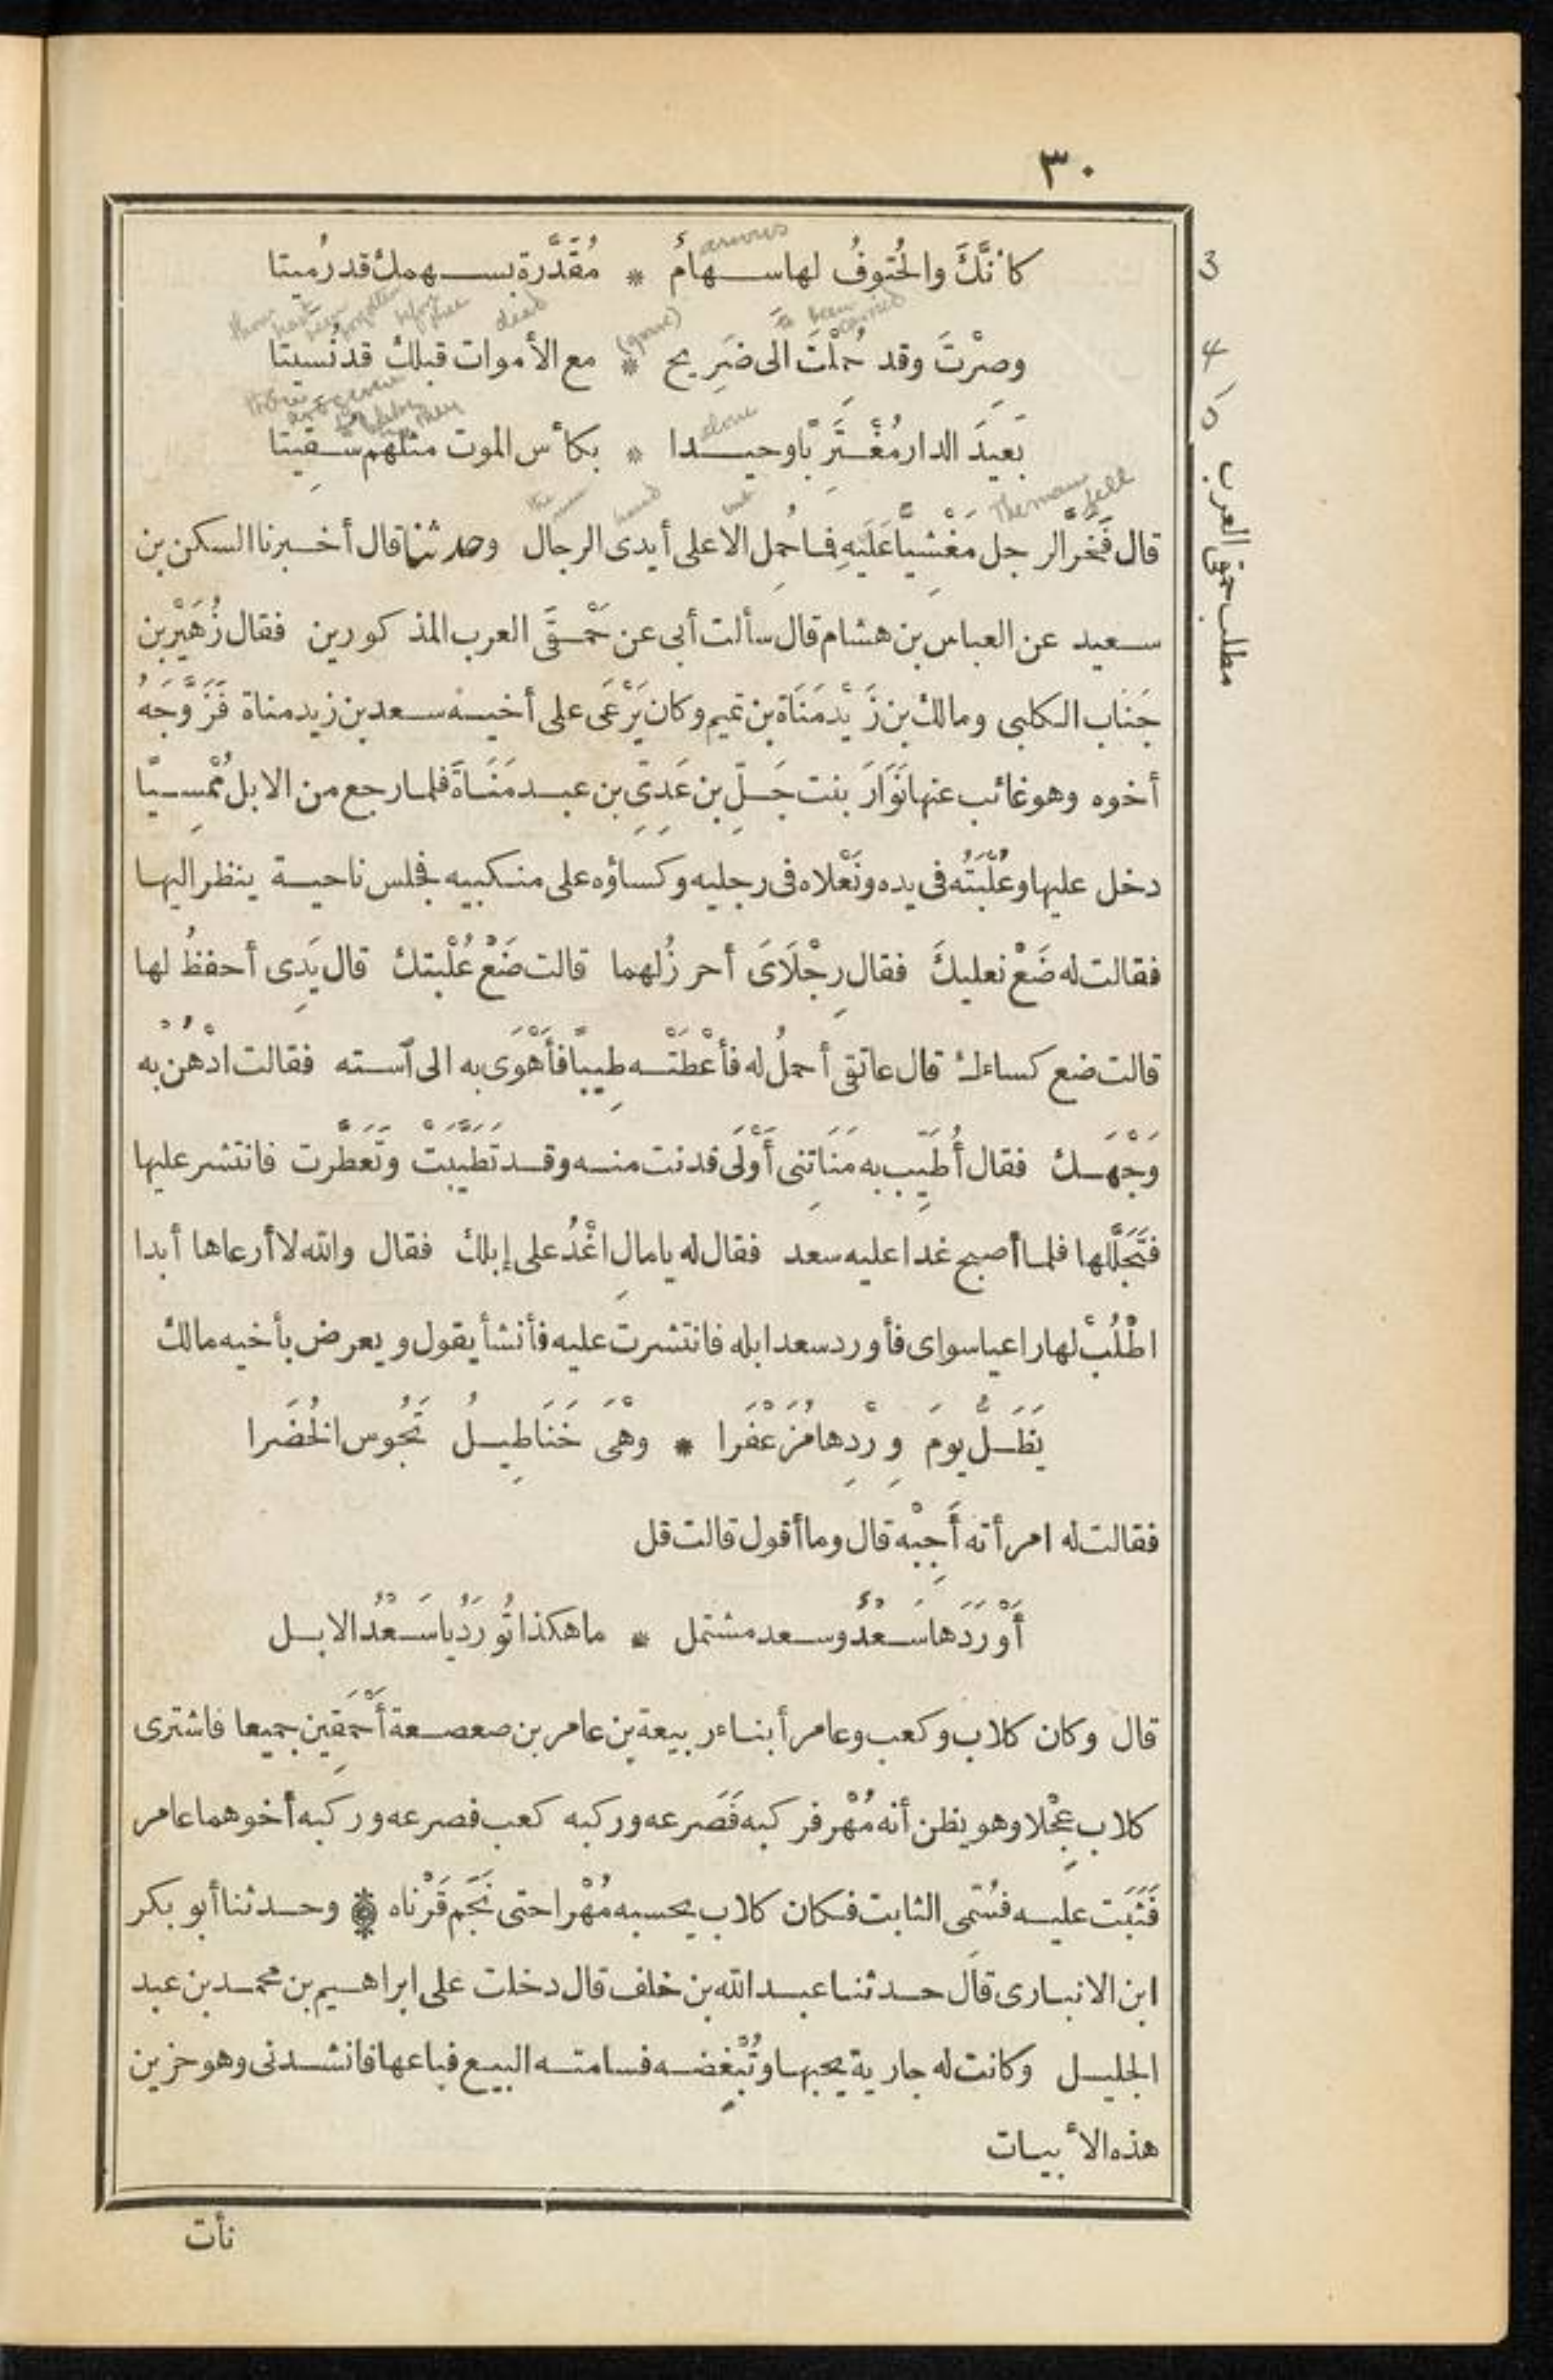 ٣٠
كأنَّكَ والحُتوفُ لها سهامٌ * مُقَدَّرة بسهمك قد رُميتا
3
وصِرْتَ وقد حُمِلْتَ الى ضَرِيح * مع الأموات قبلك قد نُسيتا
4
بَعيدَ الدار مُغْتَرِبًا وحيدا * بكأس الموت مثلهم سقِيتا
5
arrows
to been carried
(grave)
dead
alone
The man fell
but
hand
the men
مطلب حمقى العرب
قال فَخَرَّ الرجل مَغْشِيًّا عَلَيهِ فما حُمِل الا على أيدى الرجال وحدثنا قال أخبرنا السكن بن
سعيد عن العباس بن هشام قال سألت أبى عن حَمْقَى العرب المذكورين فقال زُهَيْر بن
جَنَاب الكلبى ومالك بن زَيْد مَنَاة بن تميم وكان يَرْعَى على أخيه سعد بن زيد مناة فَزَوَّجَهُ
أخوه وهو غائب عنها نَوَارَ بنت جَلِّ بن عَدِىِّ بن عبد مَنَاةَ فلما رجع من الابل مُمْسِيًّا
دخل عليها وعُلْبَتُه فى يده ونَعْلاه فى رجليه وكساؤه على منكبيه فجلس ناحية ينظر اليها
فقالت له ضَعْ نعليكَ فقال رِجْلَاىَ أحرزُ لهما قالت ضَعْ عُلْبتك قال يَدِى أحفظُ لها
قالت ضع كساءك قال عاتقى أحملُ له فأعْطَتْه طِيبًا فأَهْوَى به الى آسته فقالت ادْهُنْ به
وَجْهَك فقال أُطَيِّب به مَنَاتِنى أَوْلَى فدنت منه وقد تَطَيَّبَتْ وتَعَطَّرت فانتشر عليها
فتَجَلَّلها فلما أصبح غدا عليه سعد فقال له يا مالِ اغْدُ على إبلك فقال والله لا أرعاها أبدا
اطْلُبْ لها راعيا سواى فأورد سعد ابله فانتشرت عليه فأنشأ يقول ويعرض بأخيه مالك
يَظَلُّ يومَ وِرْدِها مُزَعْفَرا * وهْىَ خَنَاطِيلُ تَجُوس الخُضَرا
فقالت له امرأته أَجِبْه قال وما أقول قالت قل
أَوْرَدَها سَعْدٌ وسعد مشتمل * ما هكذا تُورَدُ يا سَعْدُ الابل
قال وكان كلاب وكعب وعامر أبناء ربيعة بن عامر بن صعصعة أَحْمَقِين جميعا فاشترى
كلاب عِجْلا وهو يظن أنه مُهْر فركبه فَصَرعه وركبه كعب فصرعه وركبه أخوهما عامر
فَثَبَت عليه فسُمّى الثابت فكان كلاب يحسبه مُهْرا حتى نَجَم قَرْناه * وحدثنا أبو بكر
ابن الانبارى قال حدثنا عبد الله بن خلف قال دخلت على ابراهيم بن محمد بن عبد
الجليل وكانت له جارية يحبها وتُبْغِضه فسامته البيع فباعها فانشدنى وهو حزين
هذه الأبيات
نأت